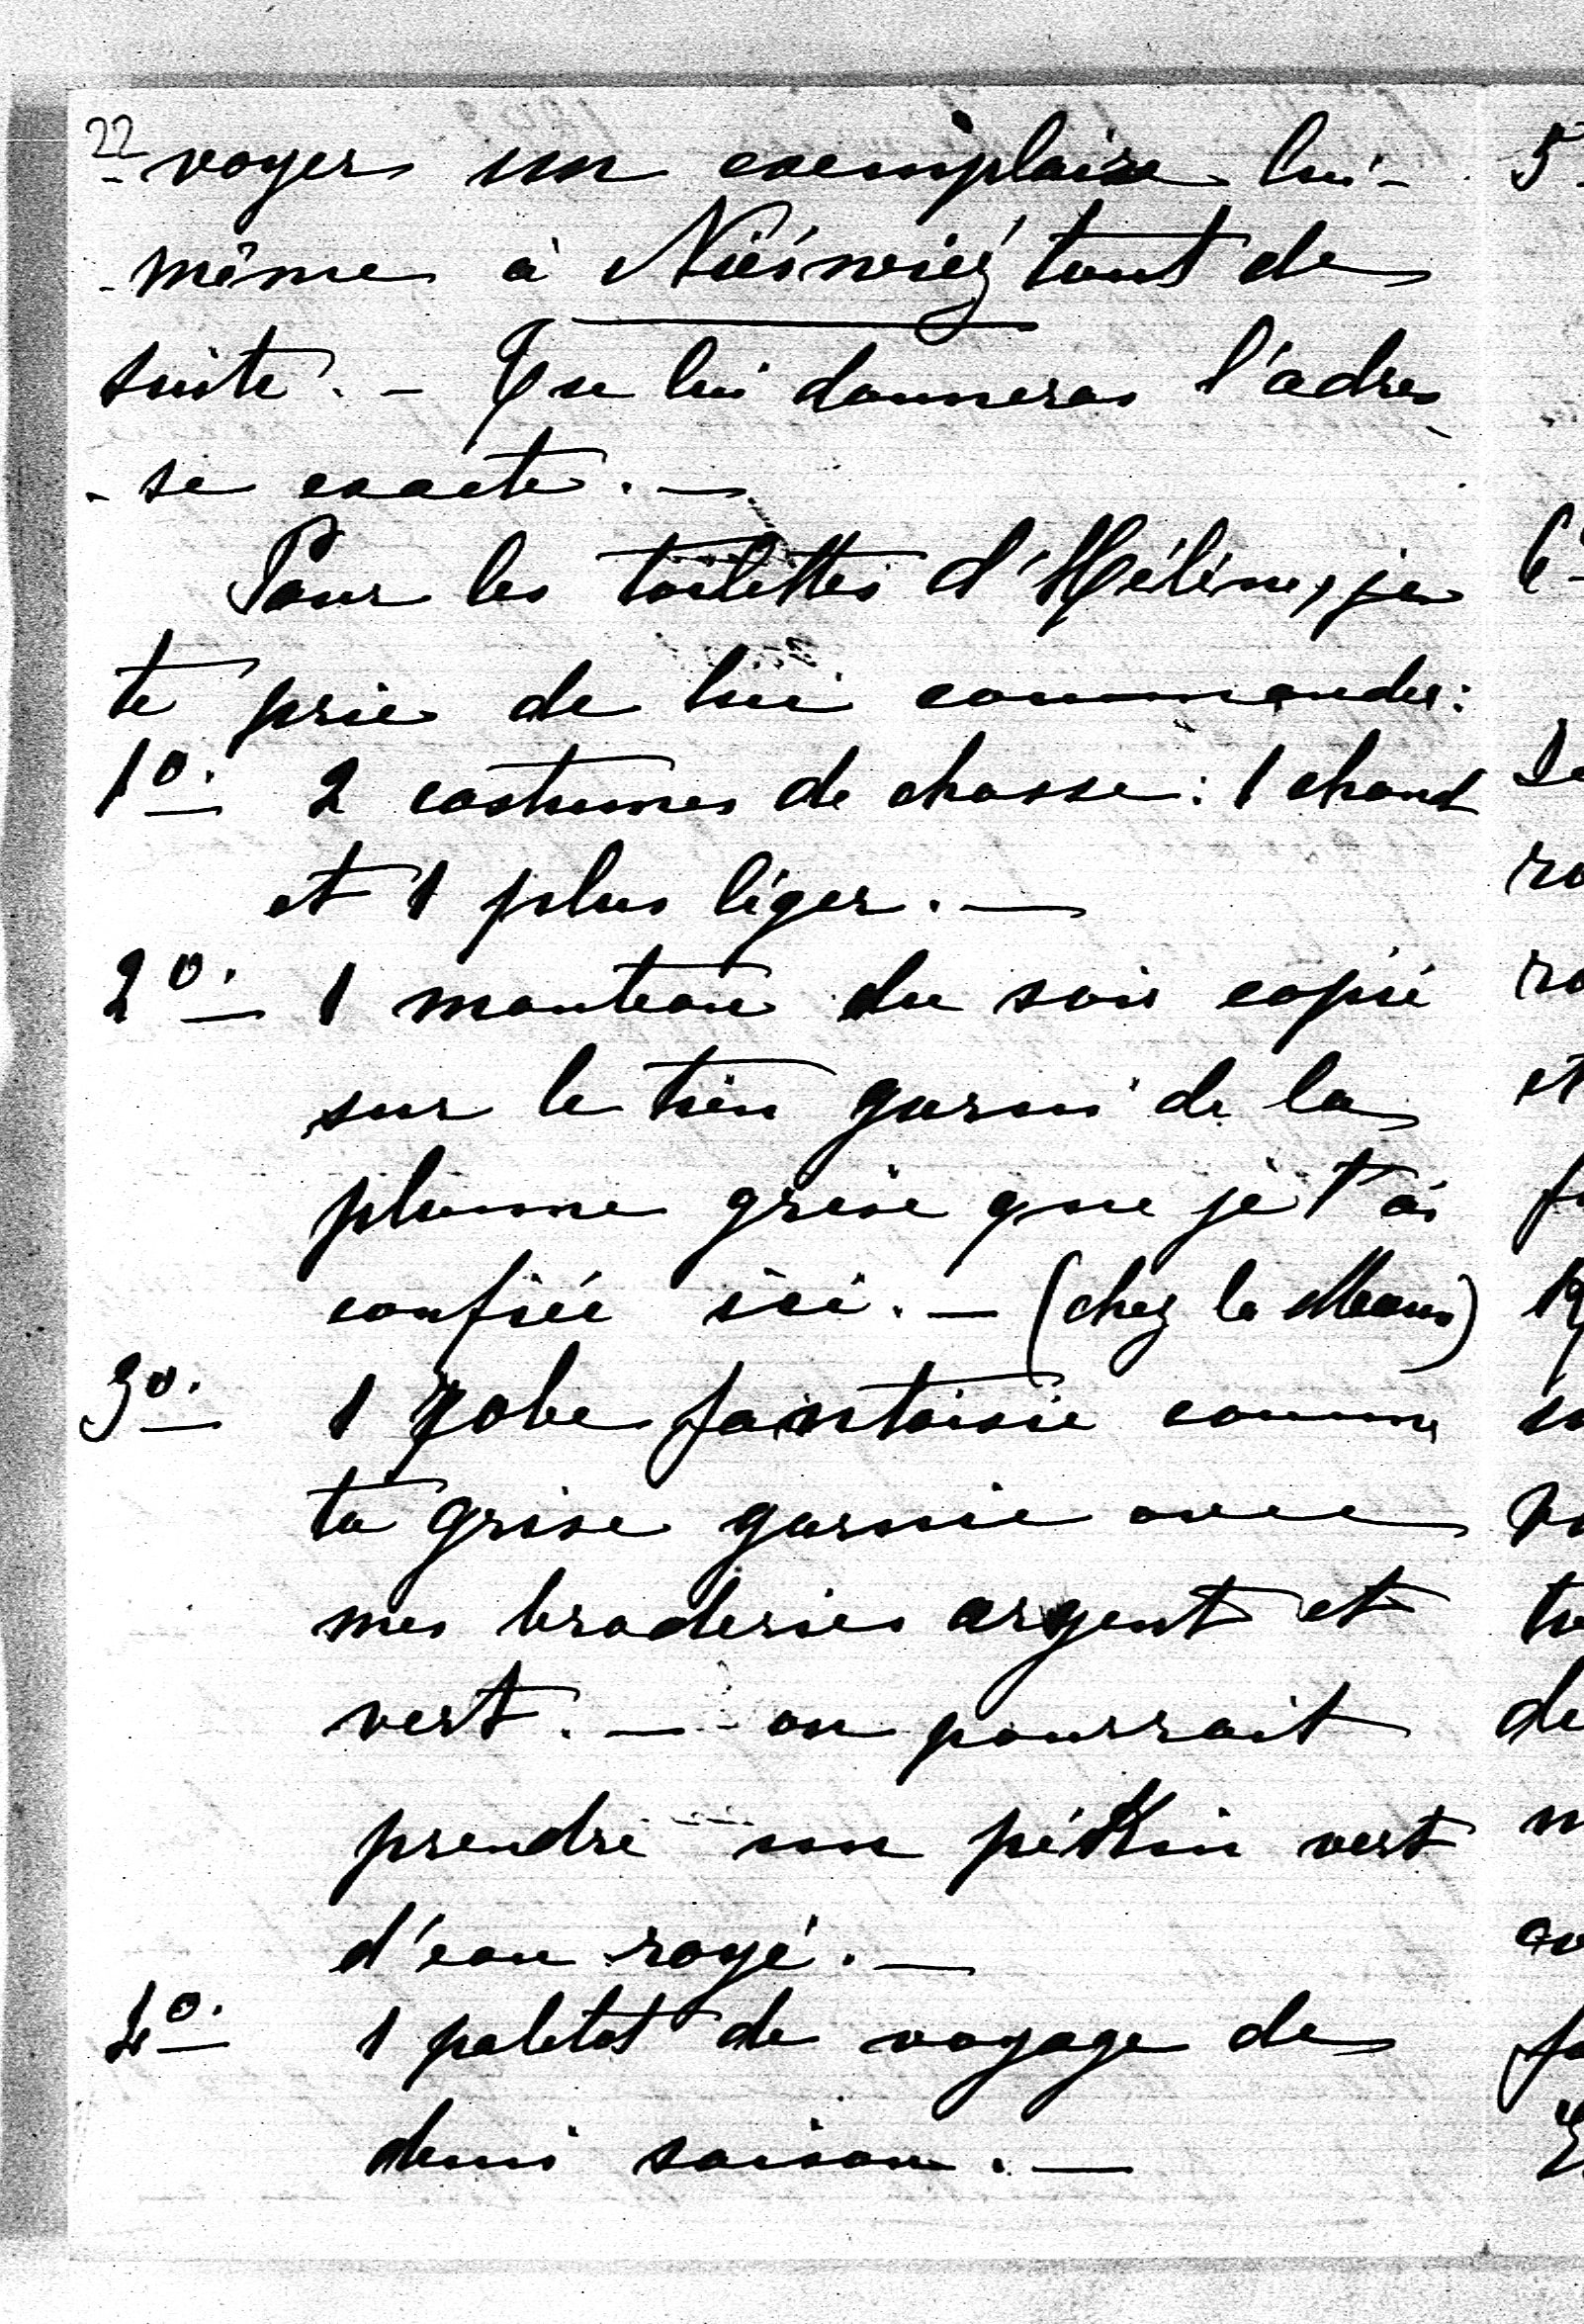 22
- voyer un exemplaire lui-
- même à Nieśwież tout de
suite. - Tu lui donneras l'adres
- se exacte. -
Pour les toilettes d'Hélène, je
te prie de lui commander:
1o. 2 costumes de chasse: 1 chaud
et 1 plus léger. -
2o. 1 manteau du soir copié
sur le tien garni de la
plume grise que je t'ai
confiée ici. - (chez la Maur)
3o. 1 robe fantaisie comme
ta grise garnie avec
mes broderies argent et
vert. - on pourrait
prendre un pékin vert
d'eau rayé. -
4o. 1 paletot de voyage de
demi saison. -